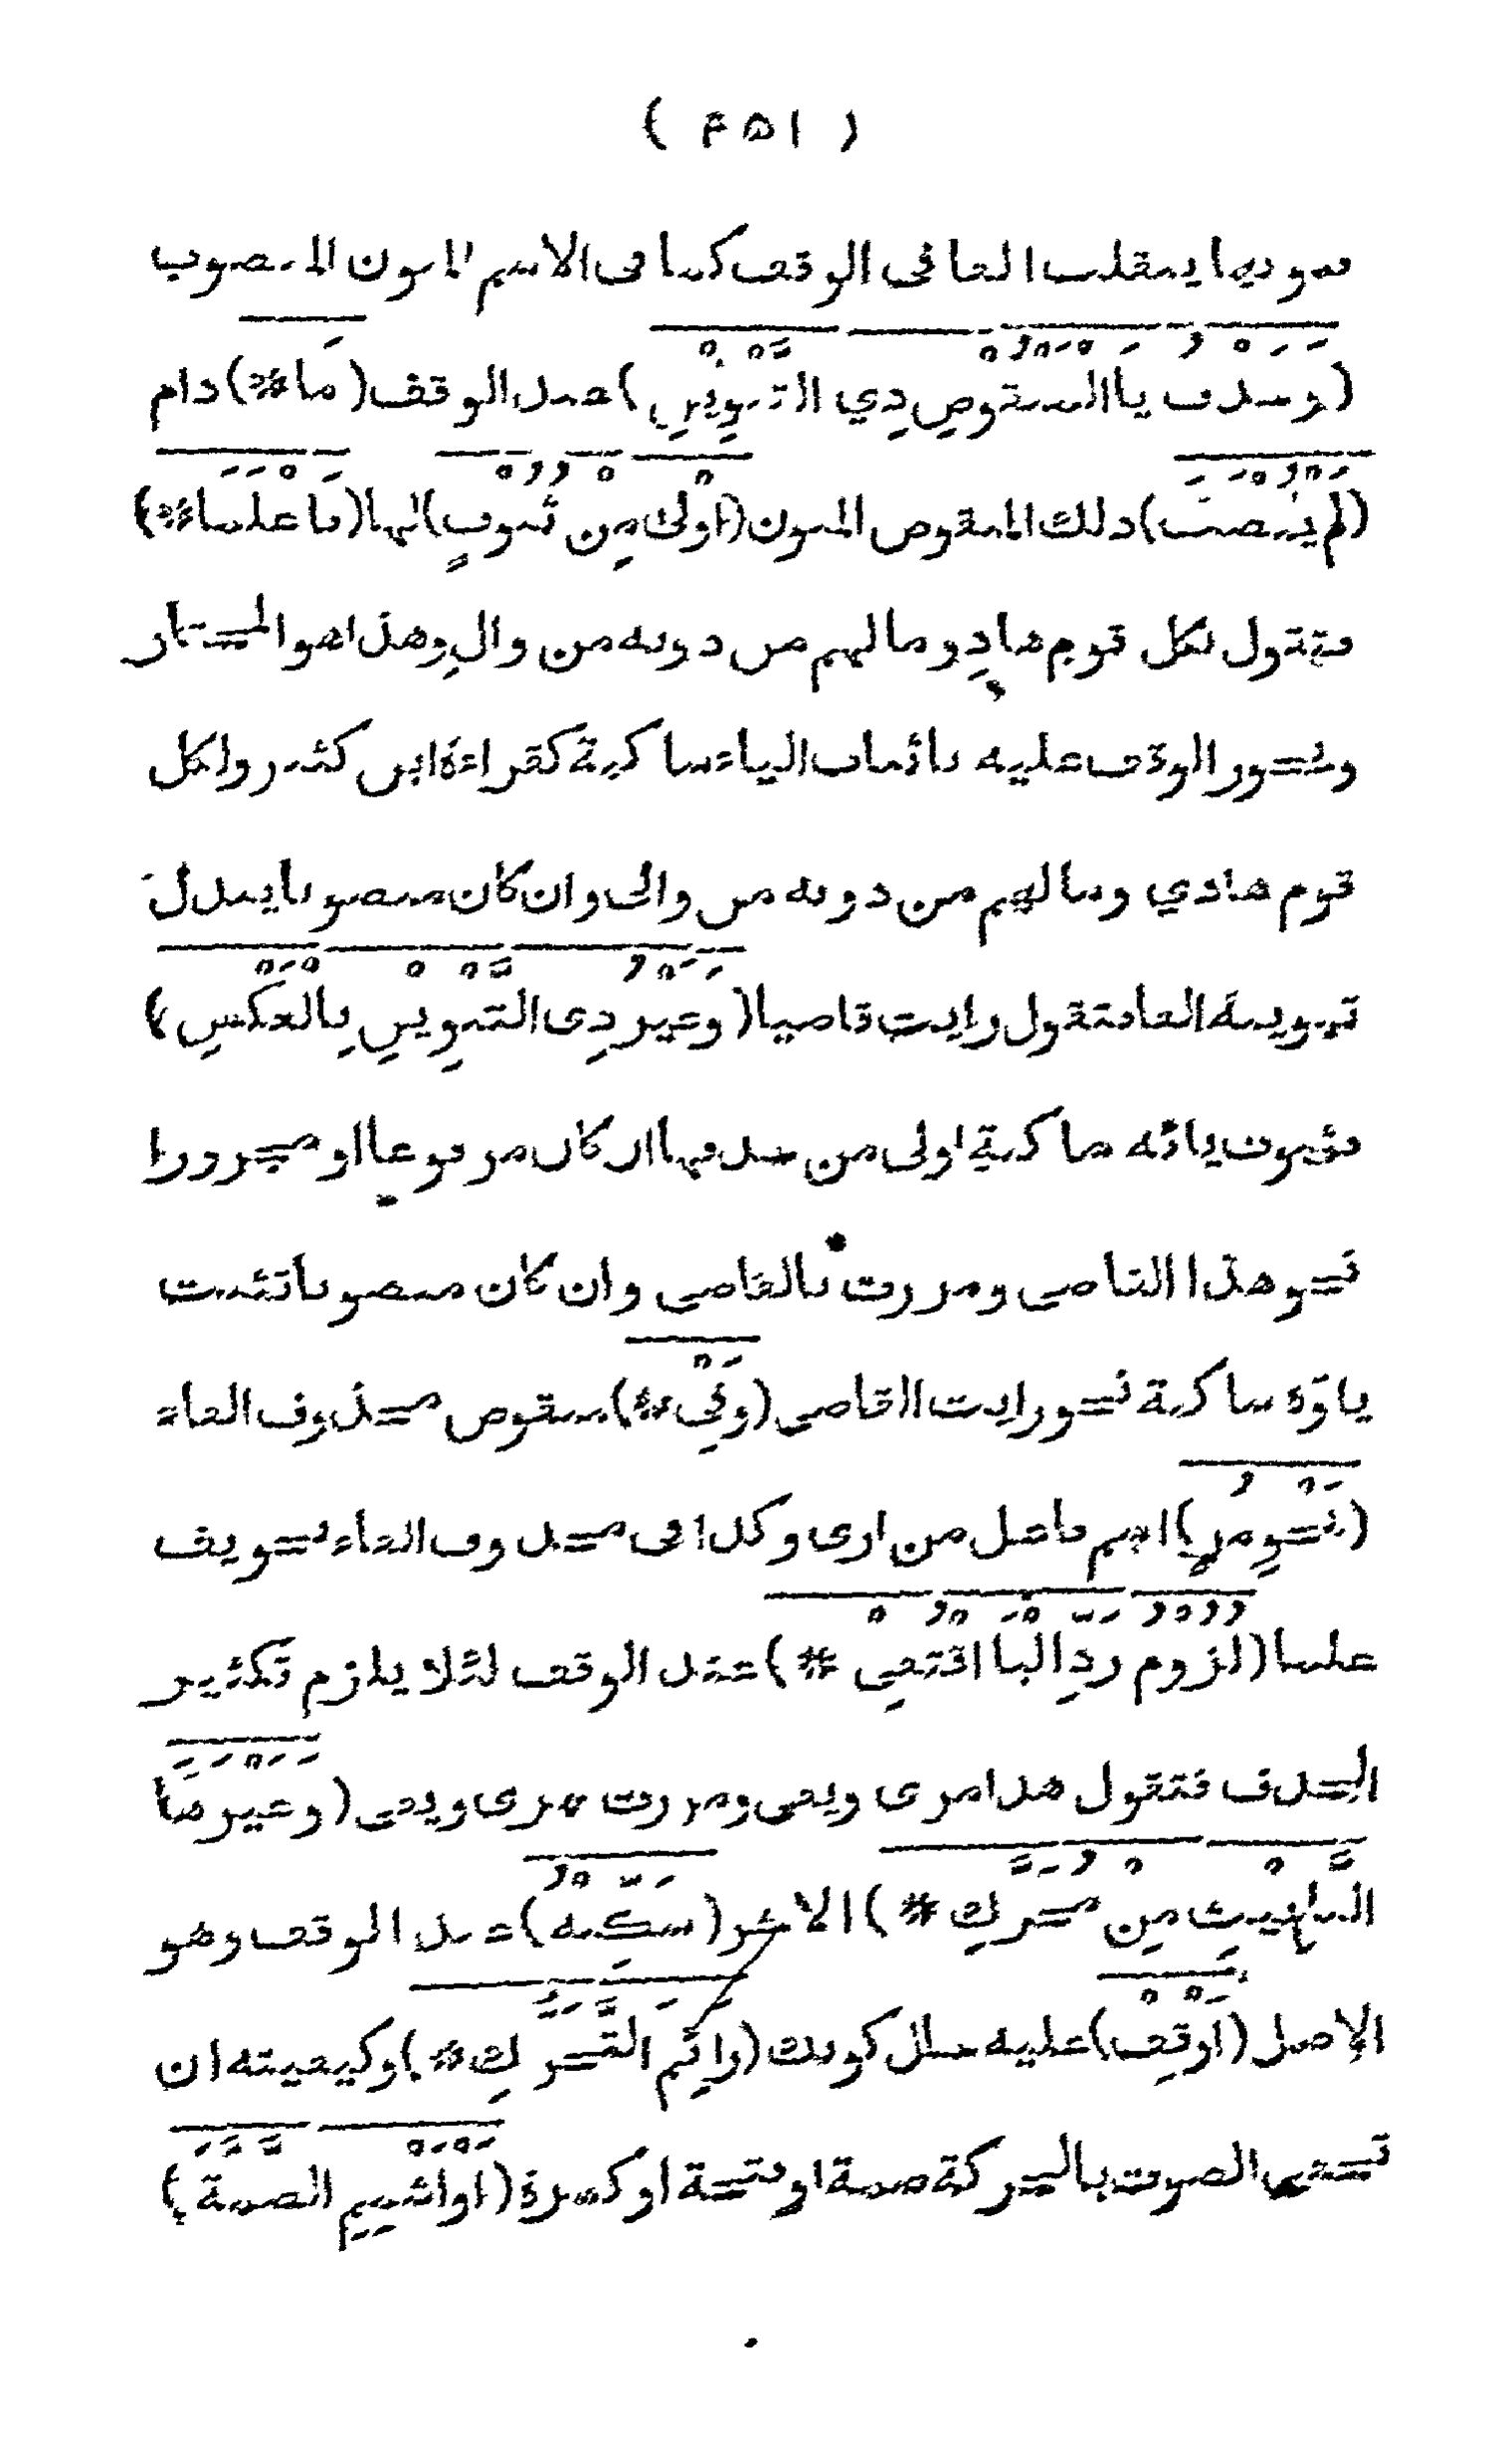 ( ۴۵۱ )
فنونها ينقلب الفا فى الوقف كما فى الاسم المنون المنصوب
(وَحَذْفُ يا المنقوصِ ذِي التنوينِ) عند الوقف (مَا *) دام
(لَمْ يُنْصَبَ) ذلك المنقوص المنون (اَوْلىٰ مِنْ ثُبُوتٍ) لها (فَاعْلَمَا *)
فتقول لكل قوم هادٍ وما لهم من دونه من والٍ وهذا هو المختار
ويجوز الوقف عليه باثبات الياء ساكنة كقراءة ابن كثير ولكل
قوم هادي وما لهم من دونه من والى وان كان منصوبا يبدل
تنوينه الفا فتقول رايت قاضيا (وَغَيْرُ ذِى التَّنْوِينِ بِالْعَكْسِ)
فثبوت يائه ساكنة اولى من حذفها ان كان مرفوعا او مجرورا
نحو هذا القاضى ومررت بالقاضى وان كان منصوبا تثبت
ياؤه ساكنة نحو رايت القاضى (وَفِي *) منقوص محذوف العين
(نَحْوِ مُرٍ) اسم فاعل من ارى وكذا فى محذوف الفاء نحو يف
علما (لُزُومُ رَدِّ اليَا اقْتُفِى *) عند الوقف لئلا يلزم تكثير
الحذف فتقول هذا مرى ويفى ومررت بمرى ويفى (وَغَيْرَ هَا
التَّانِيثِ مِنْ مُحَرَّكِ *) الاخر (سَكِّنْهُ) عند الوقف وهو
الاصل (اَوْقِفْ) عليه حال كونك (رَائِمَ التَّحَرُّكِ *) وكيفيته ان
تخفى الصوت بالحركة ضمة او فتحة او كسرة (اَوْ اَشْمِمِ الضَّمَّةَ)